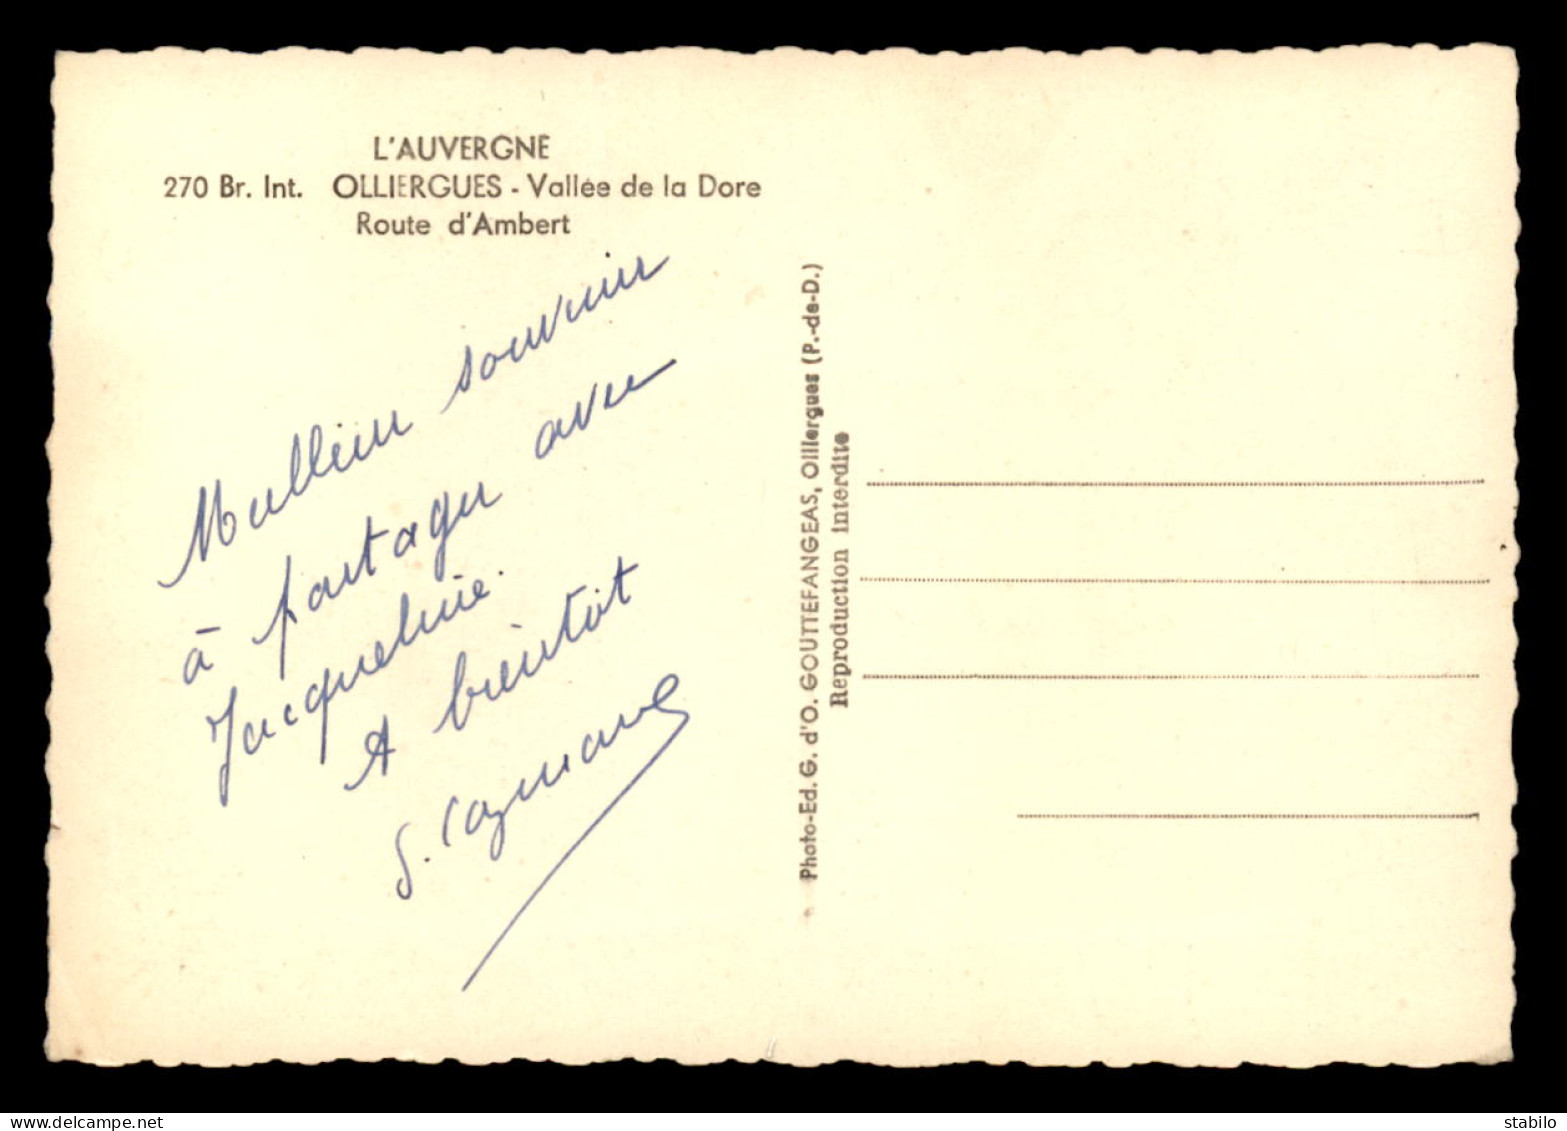 L'AUVERGNE
270 Br. Int. OLLIERGUES - Vallée de la Dore
Route d'Ambert
Meilleur souvenir
à partager avec
Jacqueline.
A bientôt
Photo-Ed. G. d'O. GOUTTEFANGEAS, Olliergues (P.-de-D.)
Reproduction interdite
delcampe.net
stabilo